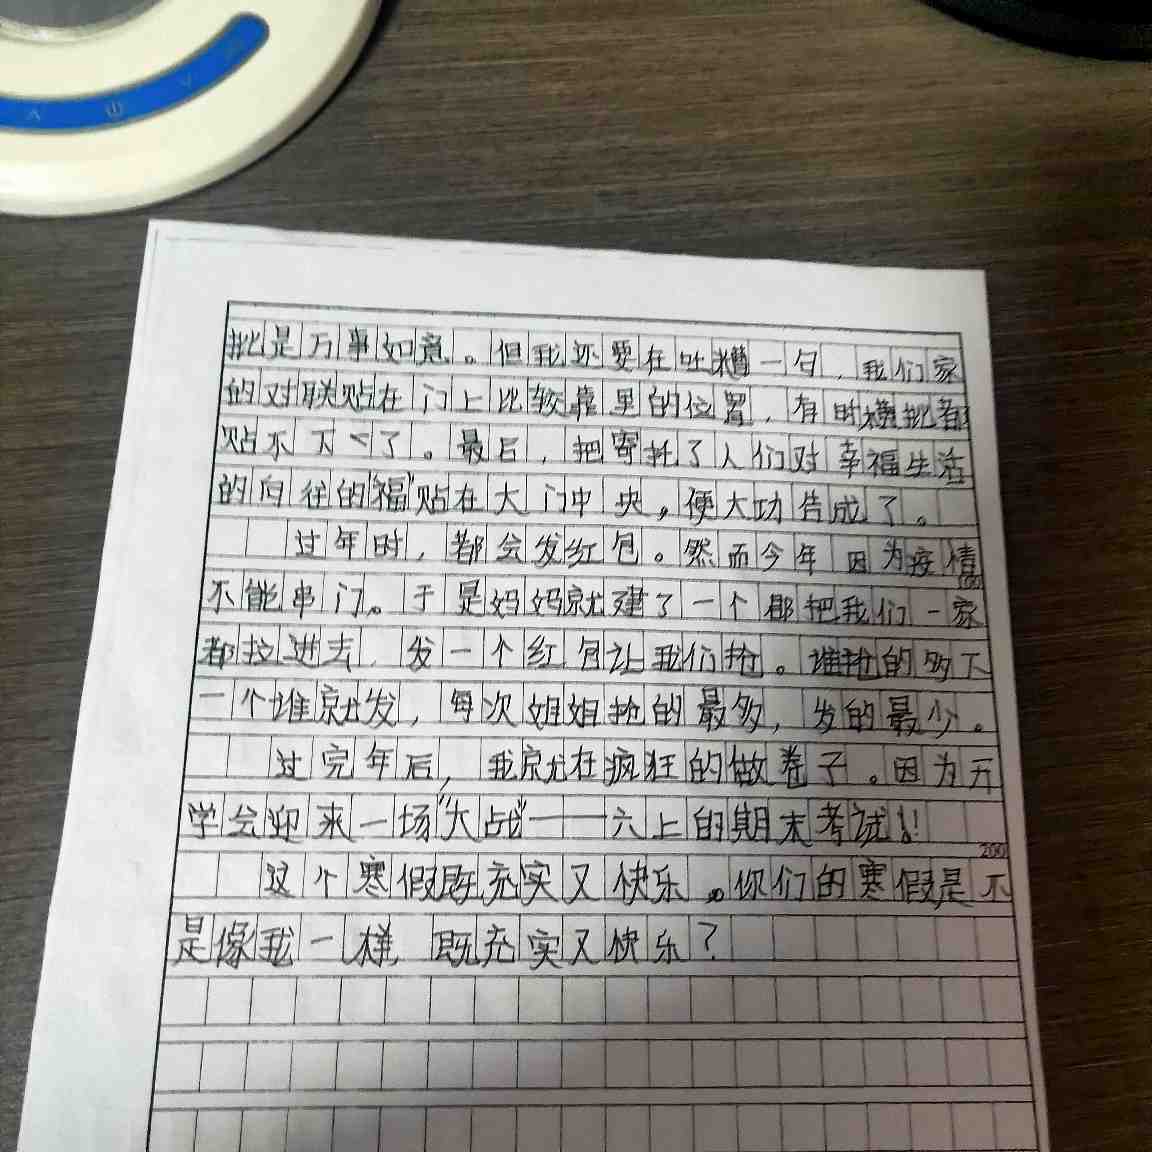 批是万事如意。但我还要在吐糟一句，我们家
的对联贴在门上比较靠里的位置，有时横批都
贴不下了。最后，把寄托了人们对幸福生活
的向往的“福”贴在大门中央，便大功告成了。
过年时，都会发红包。然而今年因为疫情
100
不能串门。于是妈妈就建了一个群把我们一家
都拉进去，发一个红包让我们抢。谁抢的多下
一个谁就发，每次姐姐抢的最多，发的最少。
过完年后，我就在疯狂的做卷子。因为开
学会迎来一场“大战”——六上的期末考试!!
200
这个寒假既充实又快乐。你们的寒假是不
是像我一样，既充实又快乐？